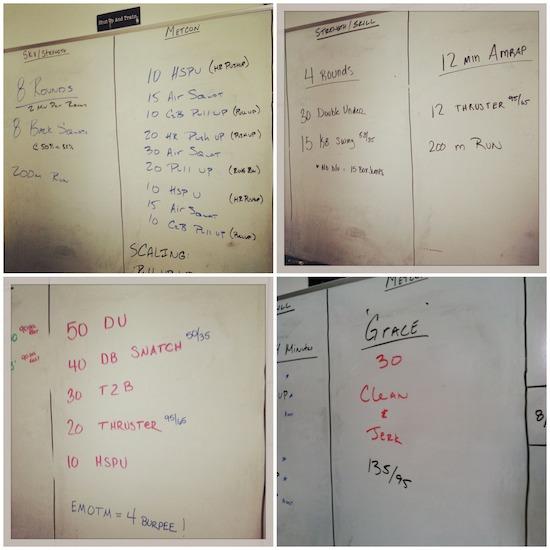 Shut Up And Train
Skill/Strength
8 Rounds
2 Min Per Round
8 Back Squat
200m Run
METCON
10 HSPU (HR PUSHUP)
15 Air Squat
10 C2B Pull up (Pullup)
20 HR Push up (Pushup)
30 Air Squat
20 Pull up
10 HSPU (HR Pushup)
15 Air Squat
10 C2B Pull up (Pullup)
SCALING:
STRENGTH/SKILL
4 Rounds
30 Double Under
15 KB Swing
12 min AMRAP
12 THRUSTER 95/65
200 m RUN
50 DU
40 DB SNATCH 50/35
30 T2B
20 THRUSTER 95/65
10 HSPU
EMOTM = 4 BURPEE!
METCON
Minutes
"GRACE"
30
Clean
&
Jerk
135/95
8/